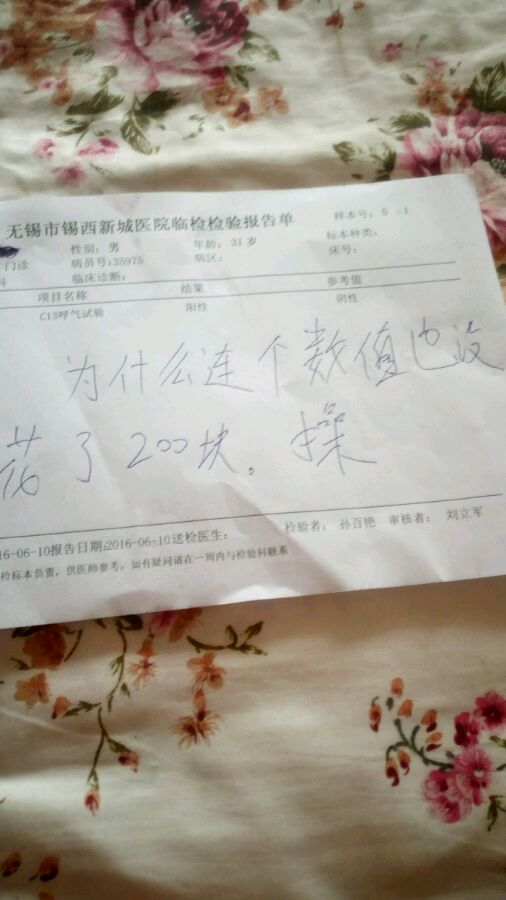 无锡市锡西新城医院临检检验报告单
样本号: 5 -1
性别: 男 年龄: 31岁 标本种类:
门诊 病员号:35975 病区: 床号:
科 临床诊断:
项目名称 结果 参考值
C13呼气试验 阳性 阴性
为什么连个数值也没
花了200块。操
检验者: 孙百艳 审核者: 刘立军
16-06-10报告日期:2016-06-10送检医生:
检标本负责,供医师参考,如有疑问请在一周内与检验科联系